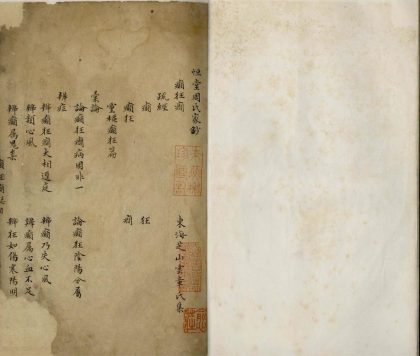 堂周氏家鈔
癲狂癇
東海芝山章氏集
疏經
癲 狂
癲狂 癇
靈樞癲狂篇
彙論
論癲狂癇病因非一 論癲狂陰陽分屬
辨症
辨癲狂癇大相逕庭 辨癲乃失心風
辨類心風 辨癲屬心血不足
辨癲屬思 辨狂如傷寒陽明